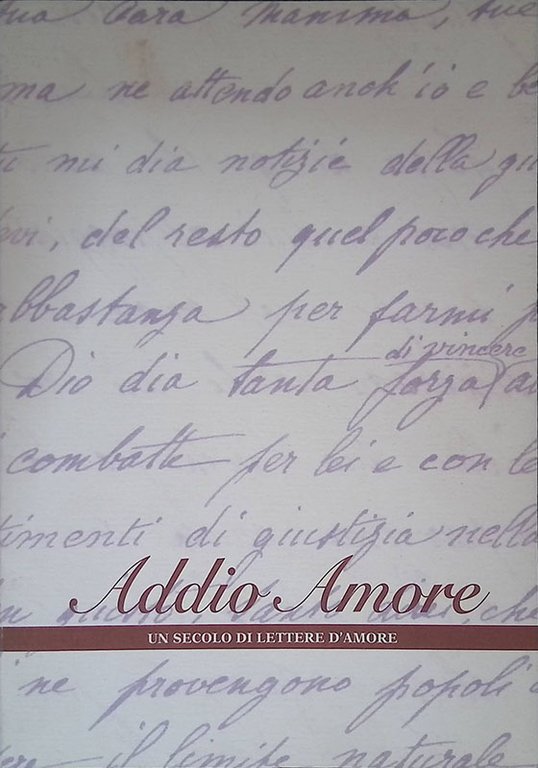 Cara Mamma, tue
ma ne attendo anch'io e be
mi dia notizie della gu
evi, del resto quel poco che
abbastanza per farmi p
di vincere
Dio dia tanta forza a
combatte per lei e con le
timenti di giustizia nella
Addio Amore
UN SECOLO DI LETTERE D'AMORE
ne provengono popoli
il limite naturale